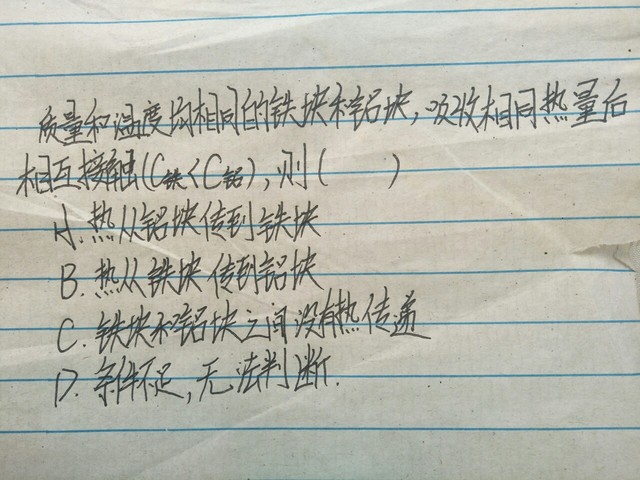 质量和温度均相同的铁块和铝块,吸收相同热量后
相互接触(C铁<C铝),则( )
A.热从铝块传到铁块
B.热从铁块传到铝块
C.铁块和铝块之间没有热传递
D.条件不足,无法判断.